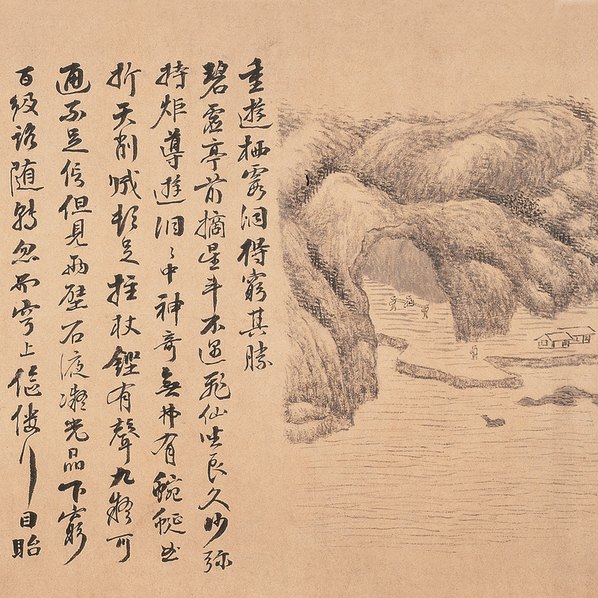 重遊栖霞洞得窮其勝
碧虛亭前摘星斗不遇飛仙坐良久沙彌
持炬導遊洞〻中神奇無弗有蜿蜒
折天削成頓足拄杖鏗有聲九疑可
通不足信但見兩壁石液凝光晶下窮
百級路隨忽而穹上傴僂行目眙